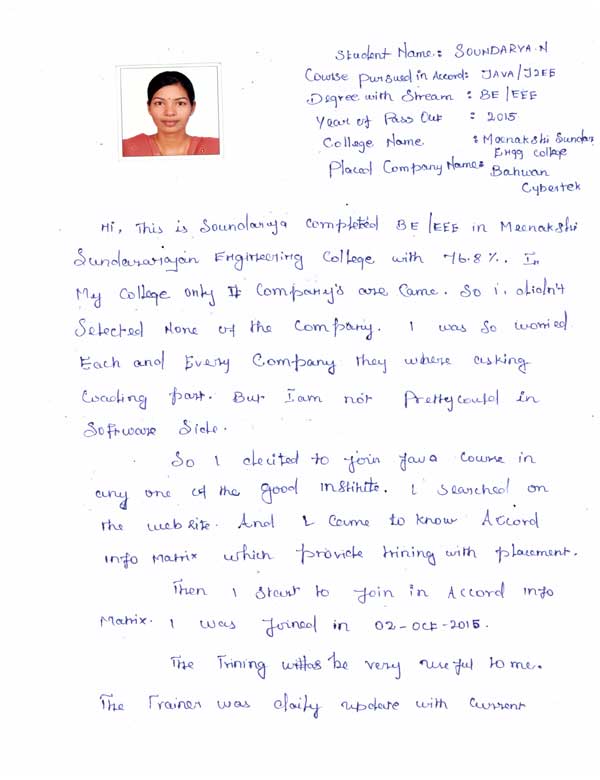 Student Name: SOUNDARYA.N
Course pursued in Accord: JAVA/J2EE
Degree with Stream : BE/EEE
Year of Pass Out : 2015
College Name : Meenakshi Sundar
Engg College
Placed Company Name: Bahwan
Cybertek
Hi, This is Soundarya completed BE/EEE in Meenakshi
Sundararajan Engineering College with 76.8%. In
My College only IT Company's are Came. So i, didn't
Selected None of the Company. I was so worried
Each and Every Company they where asking
Coading part. But I am not Pretty could in
Software Side.
So I decited to join Java course in
any one of the good institute. I searched on
the web site. And I came to know Accord
Info Matrix which provide trining with placement.
Then I start to join in Accord Info
Matrix. I was joined in 02-Oct-2015.
The Trining was be very useful to me.
The Trainer was daily update with current